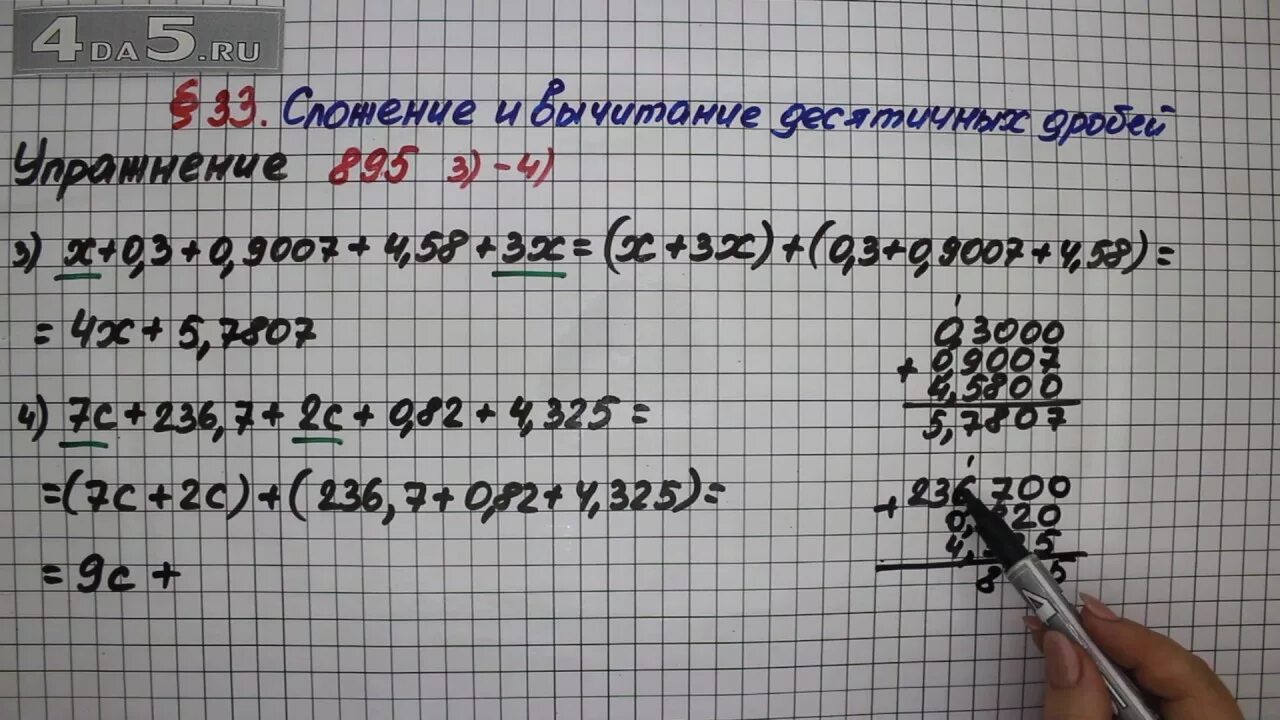 4DA5.RU
§ 33. Сложение и вычитание десятичных дробей
Упражнение 895 3)-4)
3) x+0,3+0,9007+4,58+3x=(x+3x)+(0,3+0,9007+4,58)=
=4x+5,7807
1
0,3000
+ 0,9007
4,5800
5,7807
4) 7c+236,7+2c+0,82+4,325=
=(7c+2c)+(236,7+0,82+4,325)=
=9c+
1
+ 236,700
0, 20
4, 5
8 5